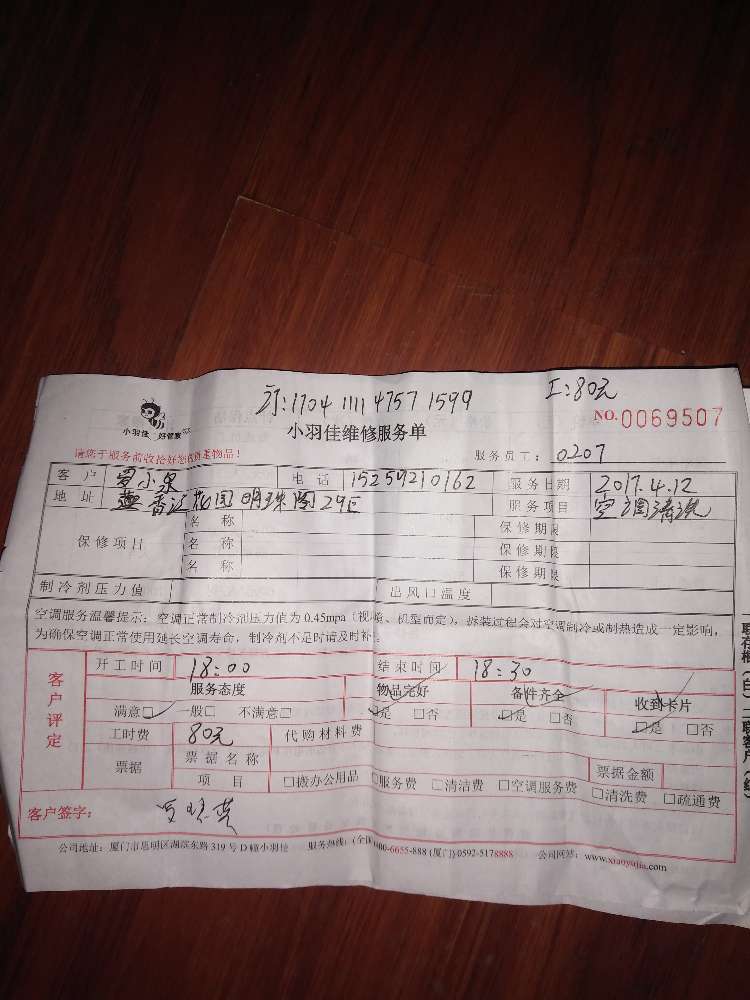 订:1704 1111 4757 1599
工:80元
小羽佳 好管家
小羽佳维修服务单
NO.0069507
请您于服务前收拾好您的贵重物品!
服务员工: 0207
客 户 电 话 15259210162 服务日期 2017.4.12
地 址 香江花园明珠阁29E 服务项目 空调清洗
保修项目
名 称 保修期限
名 称 保修期限
名 称 保修期限
制冷剂压力值 出风口温度
空调服务温馨提示:空调正常制冷剂压力值为0.45mpa(视 、机型而定),拆装过程会对空调制冷或制热造成一定影响,
为确保空调正常使用延长空调寿命,制冷剂不足时请及时补。
客户评定
开工时间 18:00 结束时间 18:30
服务态度 物品完好 备件齐全 收到卡片
满意☑ 一般□ 不满意□ ☑是 □否 ☑是 □否 ☑是 □否
工时费 80元 代购材料费
票据 票据名称 票据金额
项 目 □拨办公用品 □服务费 □清洁费 □空调服务费 □清洗费 □疏通费
客户签字:
公司地址:厦门市思明区湖滨东路319号D幢小羽佳 服务热线:(全国)400-6655-888 (厦门)0592-5178888 公司网站:www.xiaoyujia.com